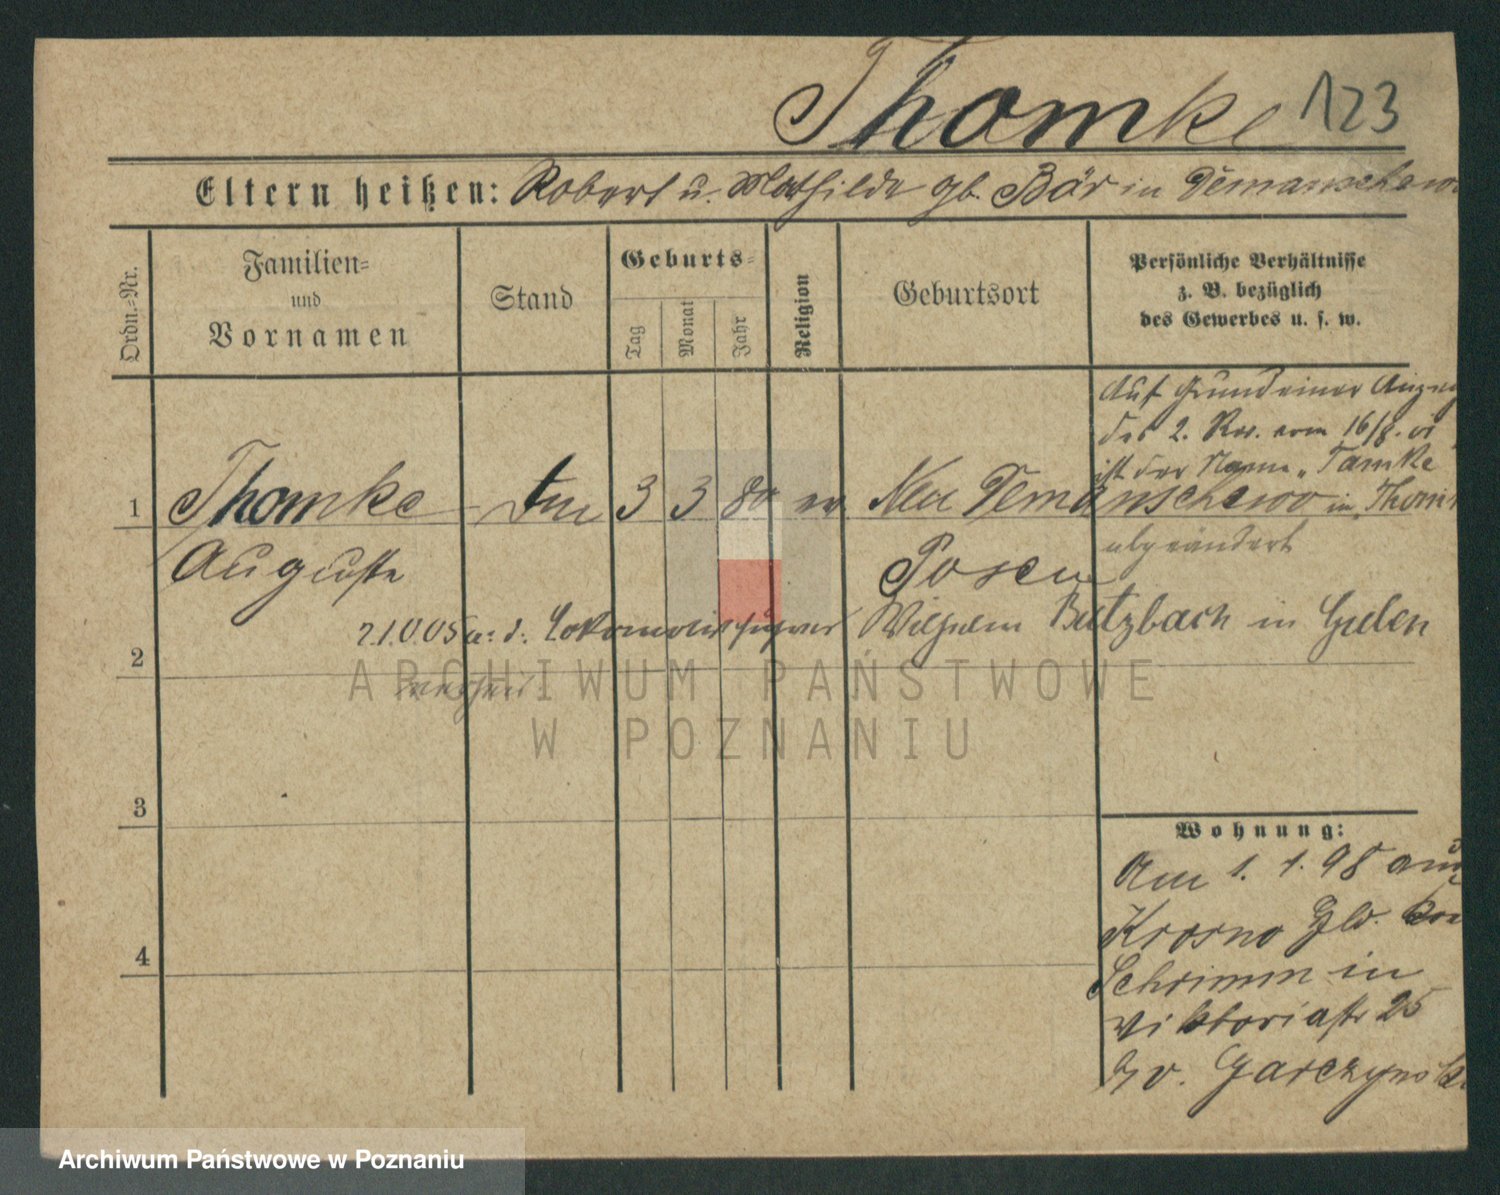 Thomke 123
Eltern heißen: Robert u. Mathilde gb. Bär in Demanschewo
Ordn.-Nr.
Familien-
und
Vornamen
Stand
Geburts-
Tag
Monat
Jahr
Religion
Geburtsort
Persönliche Verhältnisse
z. B. bezüglich
des Gewerbes u. s. w.
Auf Grund einer
des 2. Rev. vom 16/8. 01
ist der Name "Tamke
1 Thomke 3 3 80 ev Neu Demanschewo in Thomke
abgeändert
Auguste Posen
2.10.05 m. d. Lokomotivführer Wilhelm Butzbach in Guben
2
3
4
Wohnung:
Am 1. 1. 98 aus
Krosno
Schrimm in
Viktoriastr 25
b/ v. Garczynski
ARCHIWUM PAŃSTWOWE
W POZNANIU
Archiwum Państwowe w Poznaniu